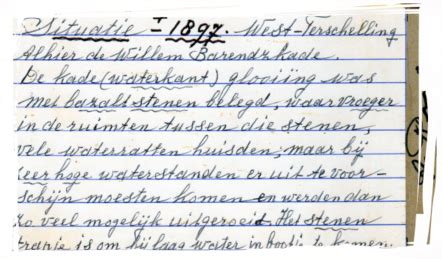 Situatie I - 1897. West-Terschelling
Alhier de Willem Barendzkade.
De kade (waterkant) glooiing was
met bazalt-stenen belegd, waar vroeger
in de ruimten tussen die stenen,
vele waterratten huisden; maar bij
zeer hoge waterstanden er uit te voor-
schijn moesten komen en werden dan
zo veel mogelijk uitgeroeid. Het stenen
trapje is om bij laag water in bootje te komen.